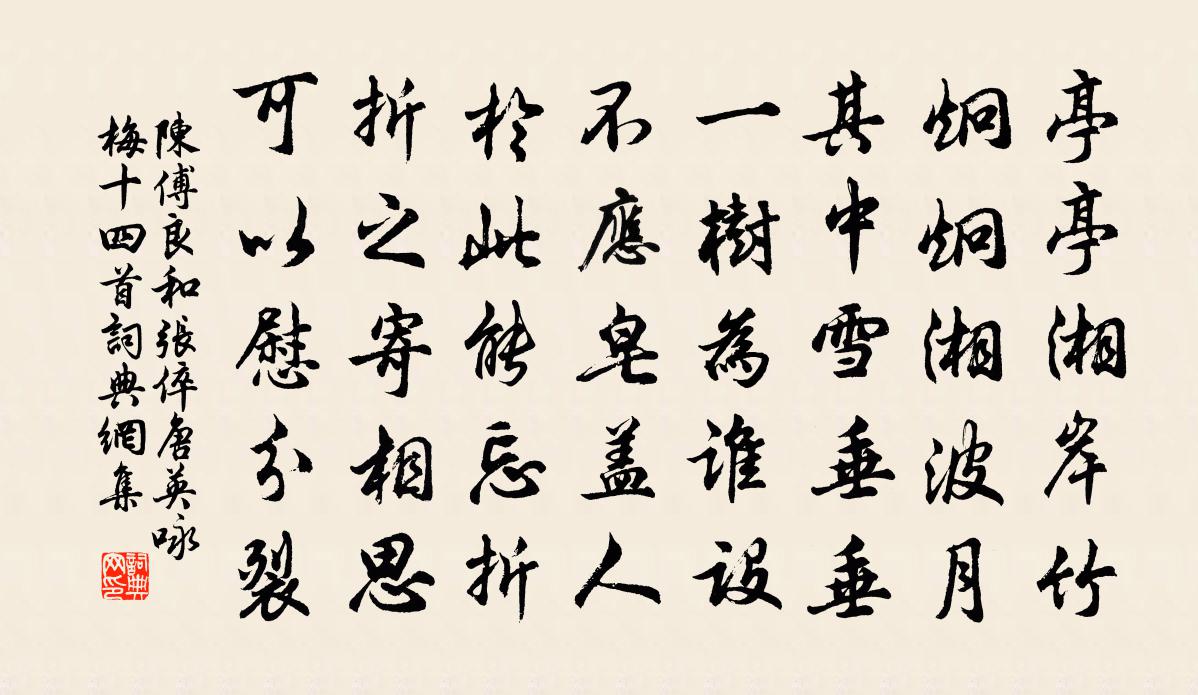 亭亭湘岸竹
炯炯湘波月
其中雪垂垂
一樹為誰設
不應皂盖人
於此能忘折
折之寄相思
可以慰分裂
陳傅良和張倅唐英咏
梅十四首詞典網集
詞典
网印